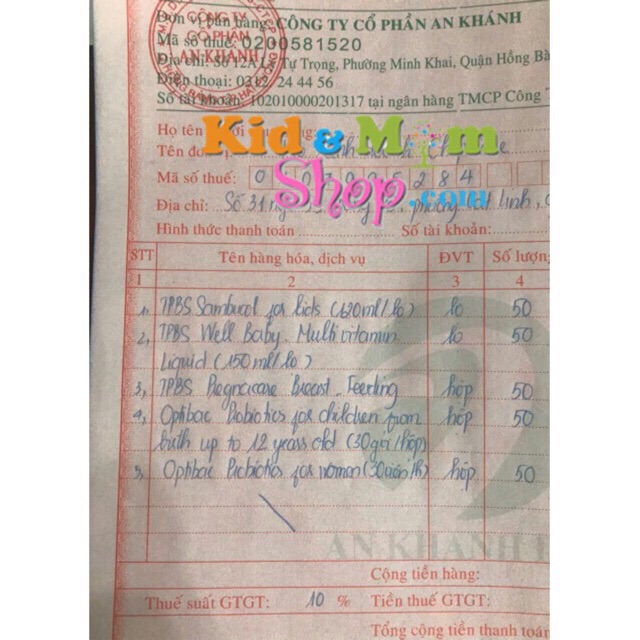 CÔNG TY
CỔ PHẦN
AN KHÁNH
Đơn vị bán hàng: CÔNG TY CỔ PHẦN AN KHÁNH
Mã số thuế: 0200581520
Địa chỉ: Số 12A Lý Tự Trọng, Phường Minh Khai, Quận Hồng Bà
Điện thoại: 24 44 56
Số tài khoản: 102010000201317 tại ngân hàng TMCP Công
Họ tên
Kid & Mom
Shop.com
Tên đơn
Mã số thuế: 0 284
Địa chỉ: Số 31 phường linh,
Hình thức thanh toán Số tài khoản:
STT Tên hàng hóa, dịch vụ ĐVT Số lượng
1 2 3 4
1, TPBS Sambucol for kids (120ml/lọ) lọ 50
2, TPBS Well Baby Multivitamin lọ 50
Liquid (150ml/lọ)
3, TPBS Pregnacare Breast-Feeding hộp 50
4, Optibac Probiotics for children from hộp 50
birth up to 12 years old (30gói/hộp)
5, Optibac Probiotics for women (30viên/h) hộp 50
AN KHANH
Cộng tiền hàng:
Thuế suất GTGT: 10 % Tiền thuế GTGT:
Tổng cộng tiền thanh toán